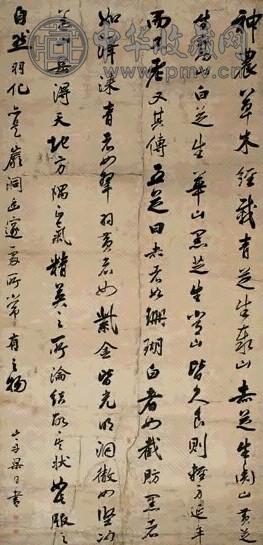 中华收藏网
神農草木經載青芝生泰山赤芝生衡山黃芝
生嵩山白芝生華山黑芝生常山皆久食則輕身延年
而不老又其傳五芝曰赤者如珊瑚白者如截肪黑者
如澤漆青者如翠羽黃者如紫金皆光明洞徹如堅冰
五岳得天地方隅之氣精英之所淪結取其狀服之
自然羽化是巖洞幽邃處所常有之物
山舟梁同書